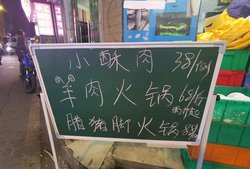 小酥肉 38/例
羊肉火锅 68/斤
腊猪脚火锅